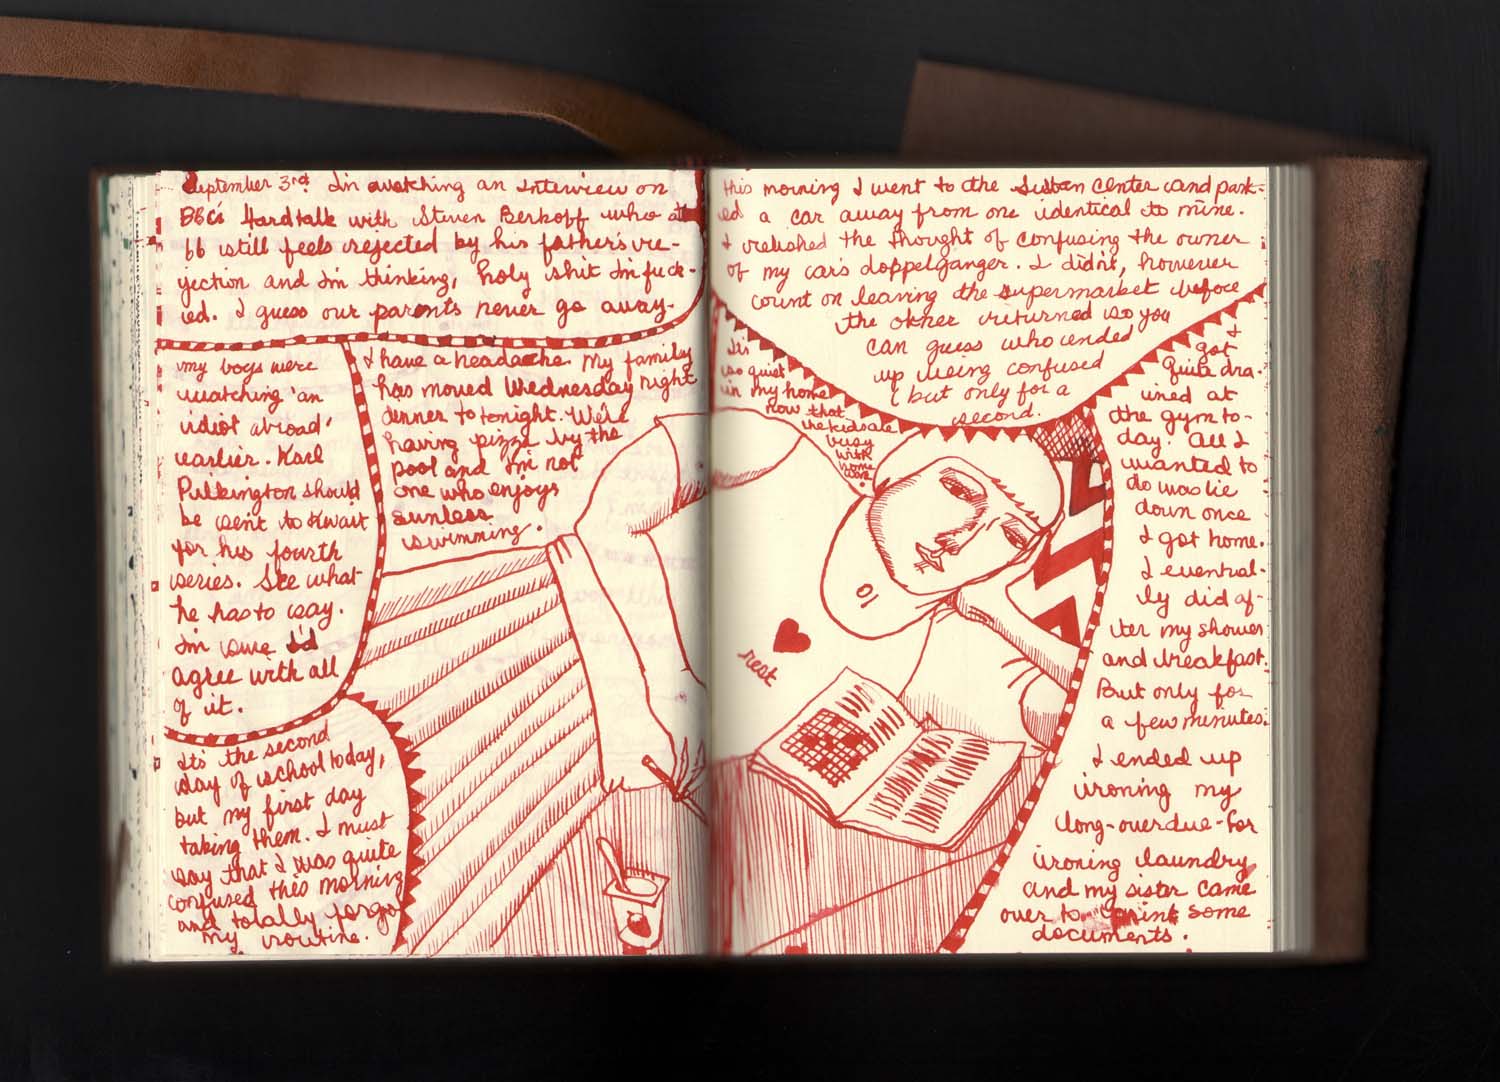 September 3rd. I'm watching an interview on
BBC's Hardtalk with Steven Berkoff who at
66 still feels rejected by his father's re-
jection and I'm thinking, holy shit I'm fuck-
ed. I guess our parents never go away.
my boys were
watching an
idiot abroad'
earlier. Karl
Pilkington should
be sent to Kwait
for his fourth
series. See what
he has to say.
I'm sure I'd
agree with all
of it.
I have a headache. My family
has moved Wednesday night
dinner to tonight. We're
having pizza by the
pool and I'm not
one who enjoys
sunless
swimming.
It's the second
day of school today,
but my first day
taking them. I must
say that I was quite
confused this morning
and totally forgot
my routine.
this morning I went to the Sultan Center and park-
ed a car away from one identical to mine.
I relished the thought of confusing the owner
of my car's doppelgänger. I didn't, however
count on leaving the supermarket before
the owner returned so you
can guess who ended
up being confused
(but only for a
second.
It's
so quiet
in my home
now that
the kids are
busy
with
home
work.
I
got
quite dra-
ined at
the gym to-
day. All I
wanted to
do was lie
down once
I got home.
I eventual-
ly did af-
ter my shower
and breakfast.
But only for
a few minutes.
I ended up
ironing my
long-overdue-for
ironing laundry
and my sister came
over to print some
documents.
10
rest